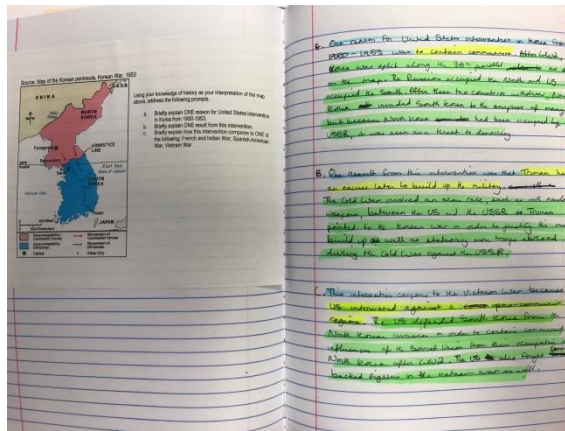 Source: Map of the Korean peninsula, Korean War, 1953
CHINA
NORTH KOREA
Pyongyang
Panmunjom
ARMISTICE LINE
East Sea
(Sea of Japan)
Seoul
SOUTH KOREA
Yellow Sea
Pusan
JAPAN
Area occupied by Communist forces
Movement of Communist forces
Area occupied by UN forces
Movement of UN forces
Capital
Other City
Using your knowledge of history as your interpretation of the map
above, address the following prompts.
a. Briefly explain ONE reason for United States intervention
in Korea from 1950-1953.
b. Briefly explain ONE result from this intervention.
c. Briefly explain how this intervention compares to ONE of
the following: French and Indian War, Spanish-American
War, Vietnam War
A. One reason for United States intervention in Korea from
1950-1953 was to contain communism. After WW2,
Korea was split along the 38th parallel
on the map. The Russians occupied the North and US
occupied the South. After these two countries withdrew, North
Korea invaded South Korea to the surprise of many
but because North Korea had been occupied by
USSR, it was seen as a threat to democracy
B. One result from this intervention was that Truman had
an excuse later to build up the military.
The Cold War involved an arms race, such as with nuclear
weapons, between the US and the USSR so Truman
pointed to the Korean War in order to justify the
build up as well as stationing more troops abroad
during the Cold War against the USSR.
C. This intervention compares to the Vietnam War because
US intervened against a communist
regime. The US defended South Korea from a
North Korean invasion in order to contain communist
influences of the Soviet Union from their occupation of
North Korea after WW2. The US also fought
backed fighters in the Vietnam war as well.